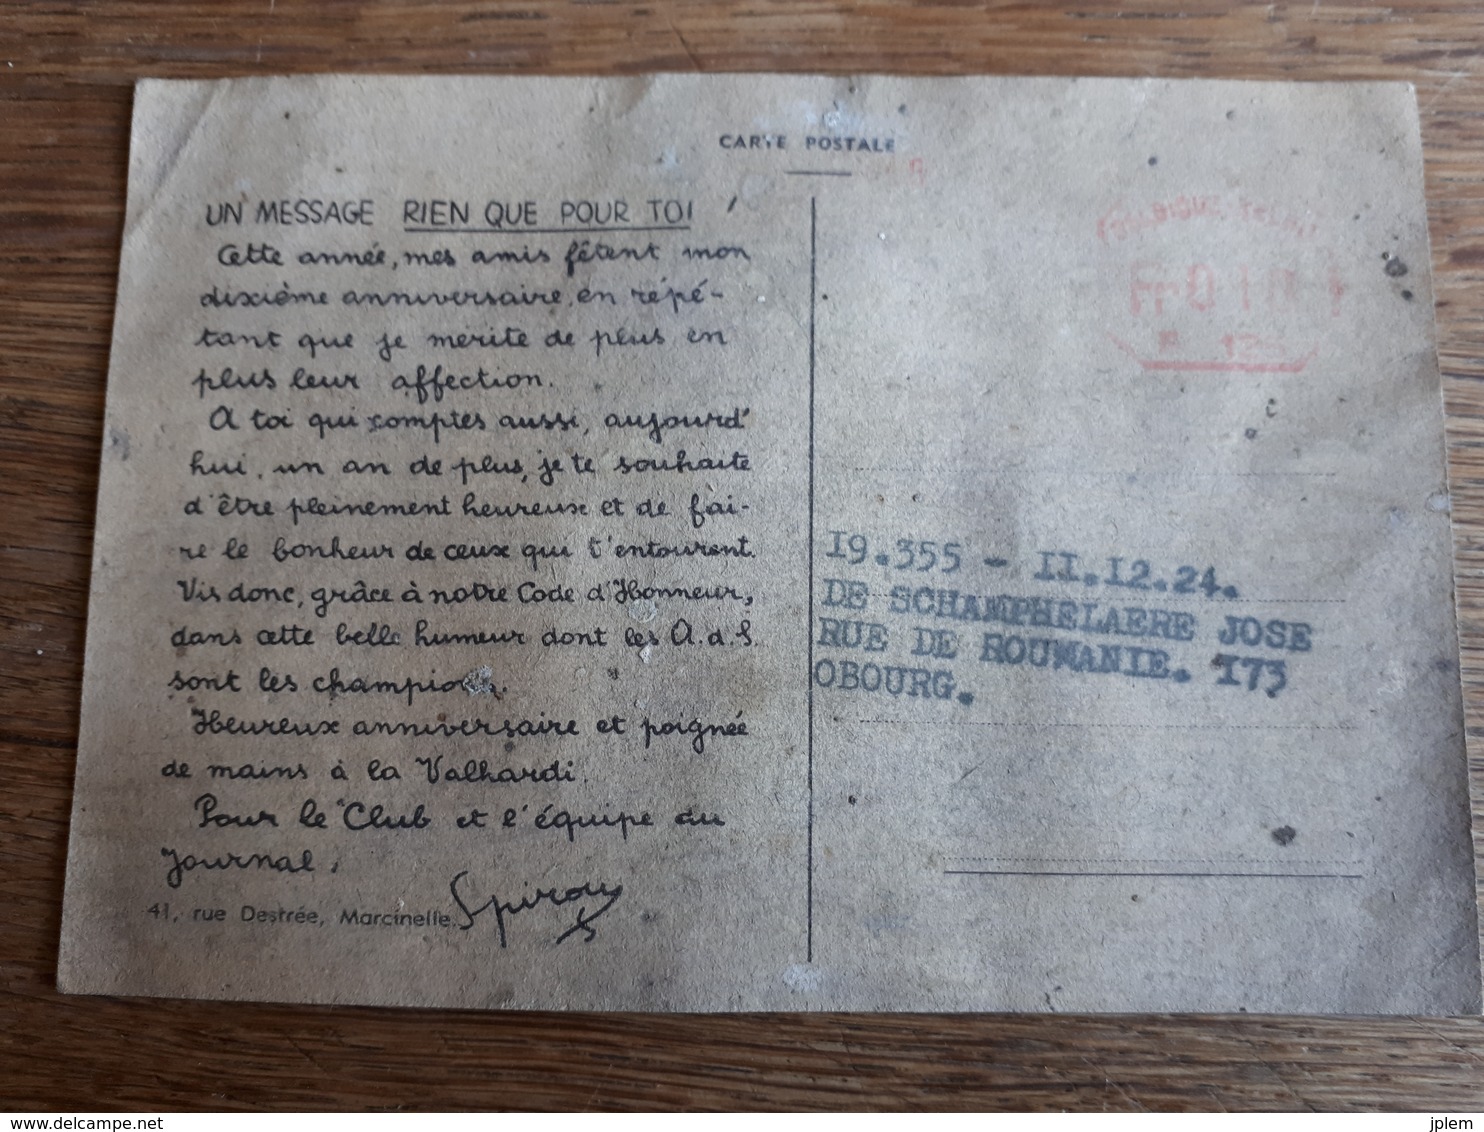 CARTE POSTALE
UN MESSAGE RIEN QUE POUR TOI !
Cette année, mes amis fêtent mon
dixième anniversaire, en répé-
tant que je mérite de plus en
plus leur affection.
A toi qui comptes aussi, aujourd'
hui, un an de plus, je te souhaite
d'être pleinement heureux et de fai-
re le bonheur de ceux qui t'entourent.
Vis donc, grâce à notre Code d'Honneur,
dans cette belle humeur dont les A.d.S.
sont les champions.
Heureux anniversaire et poignée
de mains à la Valhardi.
Pour le Club et l'équipe du
Journal,
Spirou
41, rue Destrée, Marcinelle.
I9.355 - II.I2.24.
DE SCHAMPHELAERE JOSE
RUE DE ROUMANIE. I73
OBOURG.
© delcampe.net
jplem